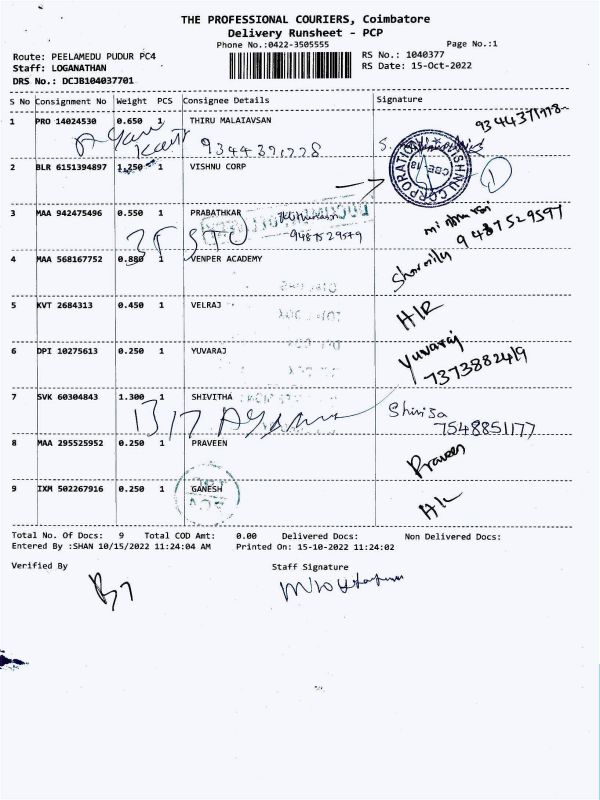 THE PROFESSIONAL COURIERS, Coimbatore
Delivery Runsheet - PCP
Phone No.:0422-3505555
Page No.:1
Route: PEELAMEDU PUDUR PC4
RS No.: 1040377
Staff: LOGANATHAN
RS Date: 15-Oct-2022
DRS No.: DCJB104037701
S No Consignment No Weight PCS Consignee Details Signature
1 PRO 14024530 0.650 1 THIRU MALAIAVSAN
9344371778
9344391778
2 BLR 6151394897 1.250 1 VISHNU CORP
VISHNU CORPORATION
CBE
1
3 MAA 942475496 0.550 1 PRABATHKAR
9487529579
9487529597
4 MAA 568167752 0.880 1 VENPER ACADEMY
5 KVT 2684313 0.450 1 VELRAJ
H/R
6 DPI 10275613 0.250 1 YUVARAJ
Yuvaraj
7373882419
7 SVK 60304843 1.300 1 SHIVITHA
7548851177
8 MAA 295525952 0.250 1 PRAVEEN
Praveen
9 IXM 502267916 0.250 1 GANESH
Total No. Of Docs: 9 Total COD Amt: 0.00 Delivered Docs: Non Delivered Docs:
Entered By :SHAN 10/15/2022 11:24:04 AM Printed On: 15-10-2022 11:24:02
Verified By Staff Signature